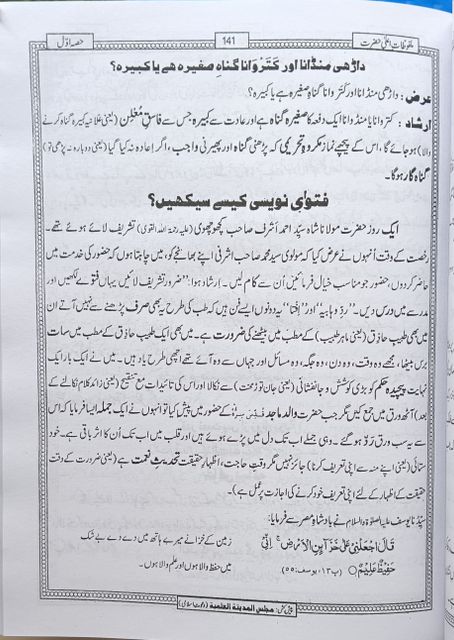 ملفوظاتِ اعلیٰ حضرت 141 حصہ اوّل
داڑھی منڈانا اور کَتَروانا گناہِ صغیرہ ہے یا کبیرہ؟
عرض : داڑھی منڈانا اور کتروانا گناہِ صغیرہ ہے یا کبیرہ؟
ارشاد : کتروانا یا منڈوانا ایک دفعہ کا صغیرہ گناہ ہے اور عادت سے کبیرہ جس سے فاسقِ مُعْلِن (یعنی علانیہ کبیرہ گناہ کرنے
والا) ہو جائے گا، اس کے پیچھے نماز مکروہِ تحریمی کہ پڑھنی گناہ اور پھیرنی واجب، اگر اعادہ نہ کیا گیا (یعنی دوبارہ نہ پڑھی تو)
گناہ گار ہوگا۔
فتوٰی نویسی کیسے سیکھیں؟
ایک روز حضرت مولانا شاہ سیِّد احمد اَشرف صاحب کچھوچھوی (علیہ رحمۃ اللہ القوی) تشریف لائے ہوئے تھے۔
رخصت کے وقت اُنہوں نے عرض کیا کہ مولوی سید محمد صاحب اشرفی اپنے بھانجے کو، میں چاہتا ہوں کہ حضور کی خدمت میں
حاضر کردوں، حضور جو مناسب خیال فرمائیں اُن سے کام لیں۔ ارشاد ہوا: "ضرور تشریف لائیں یہاں فتوے لکھیں اور
مدرسے میں درس دیں۔" "ردِّ وہابیہ" اور "اِفتا" یہ دونوں ایسے فن ہیں کہ طب کی طرح یہ بھی صرف پڑھنے سے نہیں آتے ان
میں بھی طبیبِ حاذِق (یعنی ماہر طبیب) کے مطب میں بیٹھنے کی ضرورت ہے۔ میں بھی ایک طبیبِ حاذق کے مطب میں سات
برس بیٹھا، مجھے وہ وقت، وہ دن، وہ جگہ، وہ مسائل اور جہاں سے وہ آئے تھے اچھی طرح یاد ہیں۔ میں نے ایک بار ایک
نہایت پیچیدہ حکم کو بڑی کوشش و جانفشانی (یعنی جان توڑ محنت) سے نکالا اور اس کی تائیدات مع تنقیح (یعنی زائد کلام نکالنے کے
بعد) آٹھ ورق میں جمع کیں مگر جب حضرت والدِ ماجد کے حضور میں پیش کیا تو انہوں نے ایک جملہ ایسا فرمایا کہ اس
سے یہ سب ورق رَدّ ہو گئے۔ وہی جملے اب تک دل میں پڑے ہوئے ہیں اور قلب میں اب تک اُن کا اثر باقی ہے۔ خود
ستائی (یعنی اپنے منہ سے اپنی تعریف کرنا) جائز نہیں مگر وقتِ حاجت، اظہارِ حقیقت تحدیثِ نعمت ہے (یعنی ضرورت کے وقت
حقیقت کے اظہار کے لئے اپنی تعریف خود کرنے کی اجازت پر عمل ہے)۔
سیِّدُنا یوسف علیہ الصلوٰۃ والسلام نے بادشاہِ مصر سے فرمایا:
قَالَ اجْعَلْنِیْ عَلٰی خَزَآىِٕنِ الْاَرْضِۚ اِنِّیْ زمین کے خزانے میرے ہاتھ میں دے دے بے شک
حَفِیْظٌ عَلِیْمٌ (پ ۱۳، یوسف: ۵۵) میں حفظ والا ہوں اور علم والا ہوں۔
پیش کش: مجلس المدینۃ العلمیۃ (دعوتِ اسلامی)